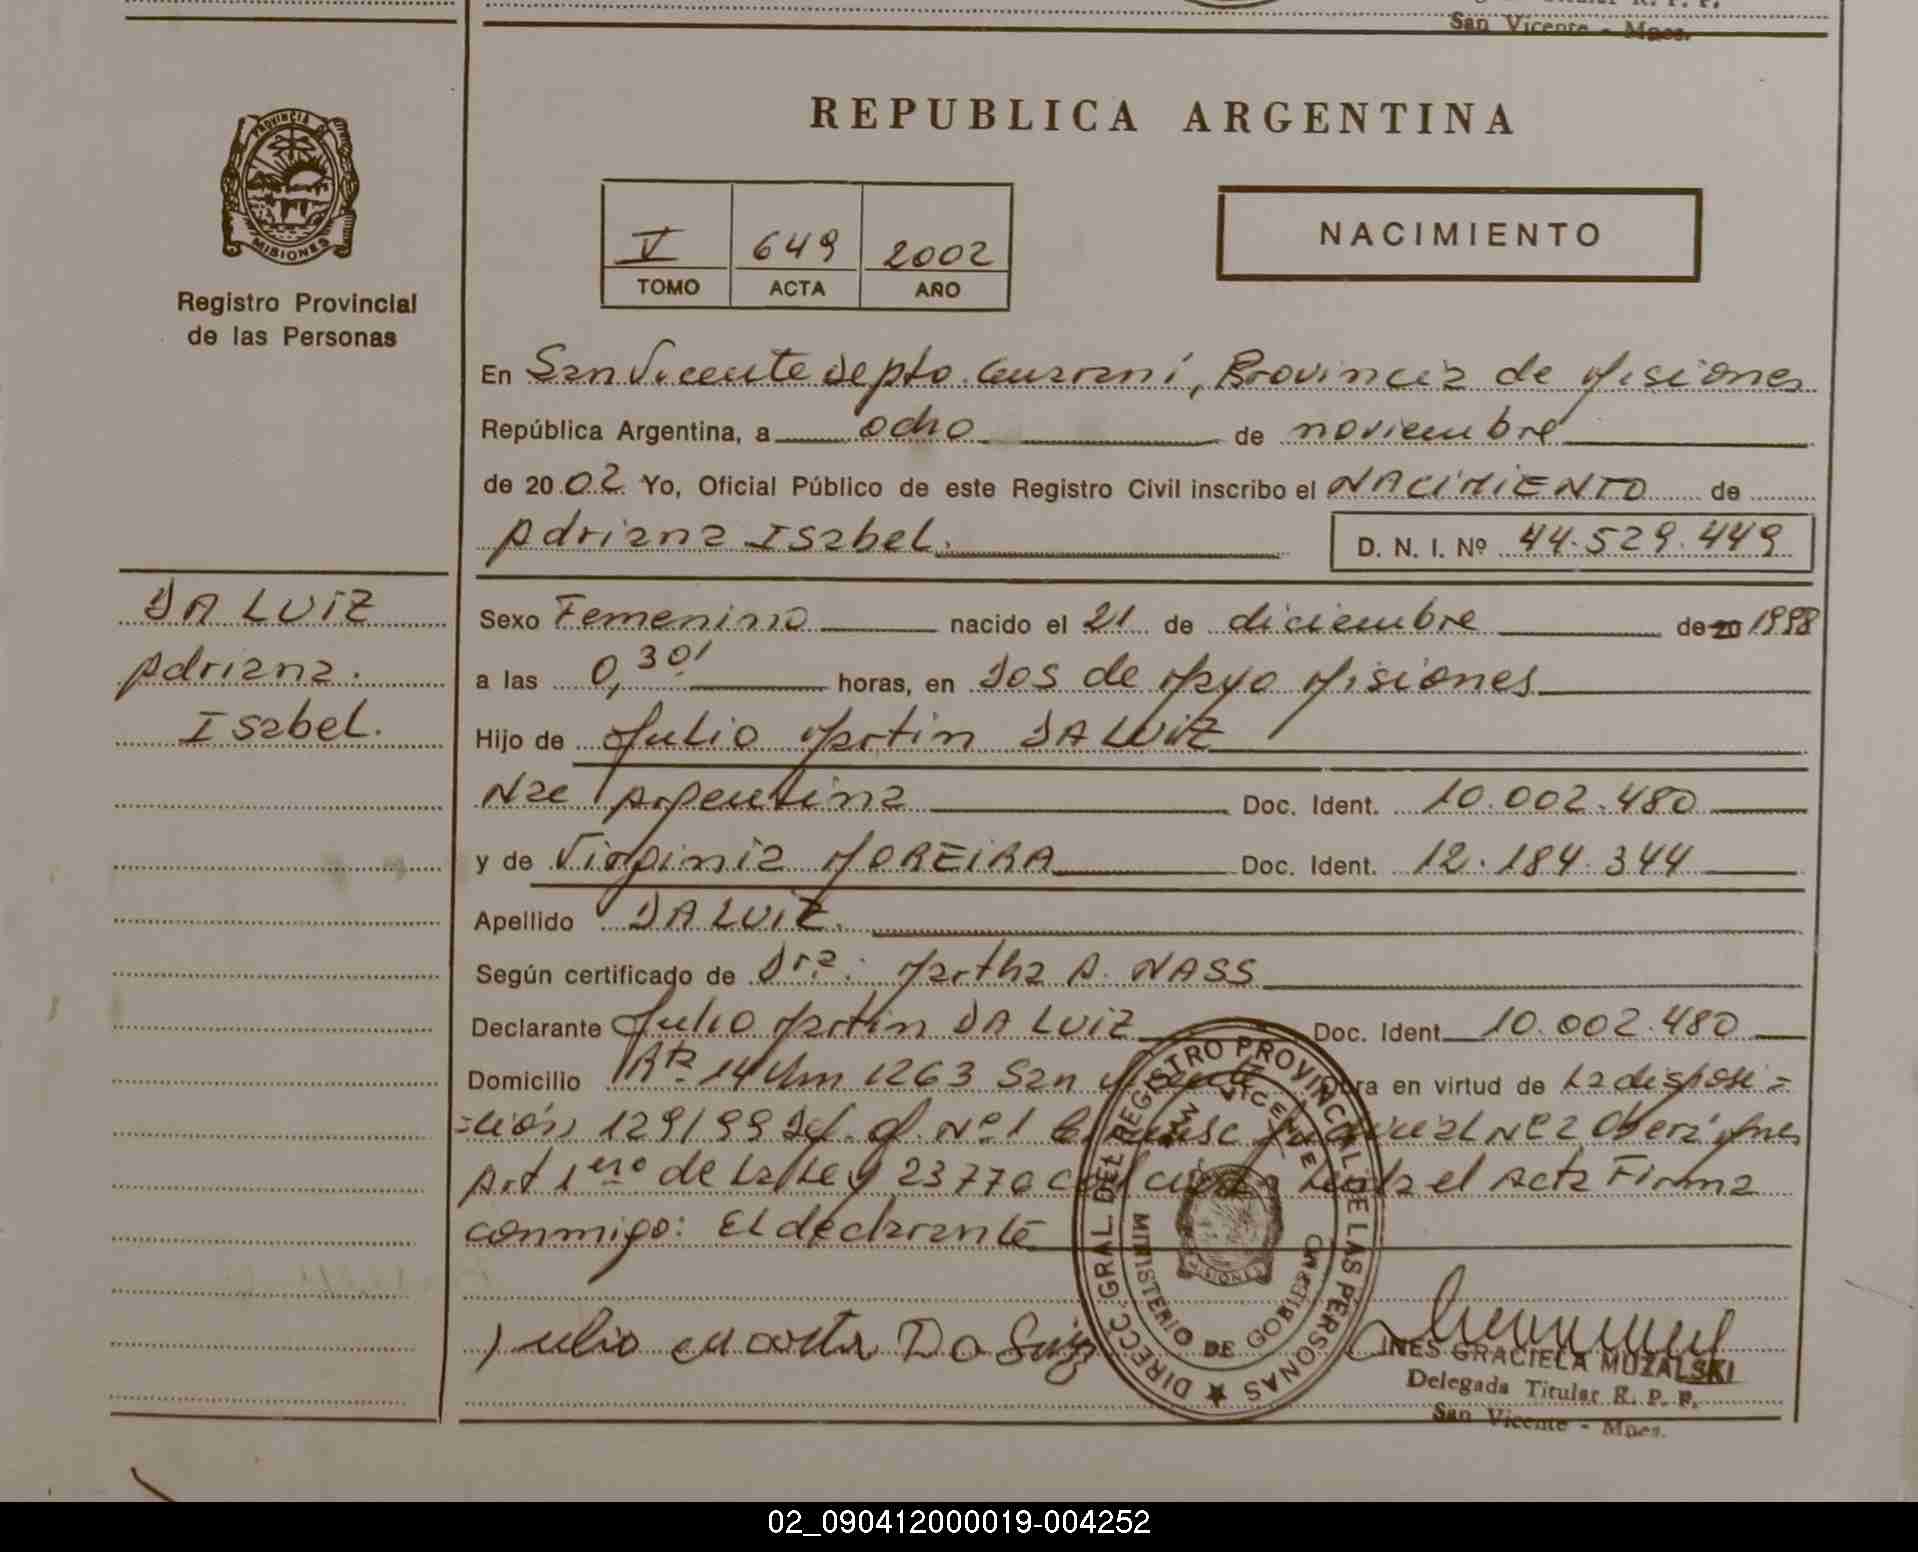 San Vicente - Mnes.
PROVINCIA DE
MISIONES
Registro Provincial
de las Personas
REPUBLICA ARGENTINA
V 649 2002
TOMO ACTA AÑO
NACIMIENTO
En San Vicente depto. Guaraní, Provincia de Misiones
República Argentina, a ocho de noviembre
de 2002 Yo, Oficial Público de este Registro Civil inscribo el NACIMIENTO de
Adriana Isabel. D. N. I. Nº 44.529.449
DA LUIZ
Adriana.
Isabel.
Sexo Femenino nacido el 21 de diciembre de 20 1998
a las 0,30' horas, en Dos de Mayo Misiones
Hijo de Julio Martin DA LUIZ
Nac Argentina Doc. Ident. 10.002.480
y de Virginia MOREIRA Doc. Ident. 12.184.344
Apellido DA LUIZ.
Según certificado de Dra. Martha A. NASS
Declarante Julio Martin DA LUIZ Doc. Ident. 10.002.480
Domicilio Rta 14 Km 1263 San Vicente Obra en virtud de La disposi=
=ción 129/99 Nº 1 Nº 2 Oberá Mnes
Art 1ero de La Ley 23770 el Acta Firma
conmigo: El declarante
Julio Martin Da Luiz
DIRECC. GRAL DEL REGISTRO PROVINCIAL DE LAS PERSONAS
SAN VICENTE
MINISTERIO DE GOBIERNO
MISIONES
INES GRACIELA MUZALSKI
Delegada Titular R. P. P.
San Vicente - Mnes.
02_090412000019-004252